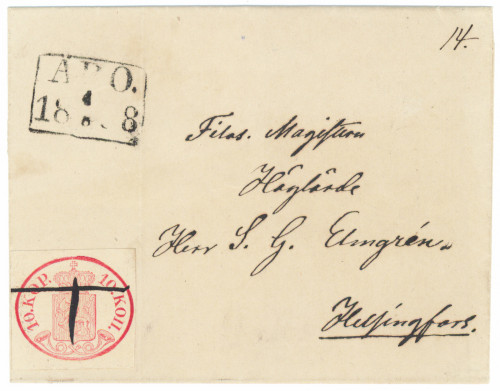 14.
ÅBO.
18 1/8 8
Filos. Magistern
Höglärde
Herr S. G. Elmgrén.
Helsingfors.
10. KOP. 10. КОП.